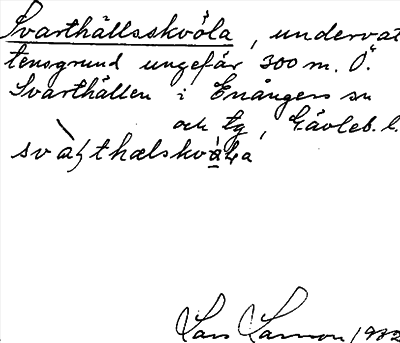 Svarthällsskvöla, undervat
tensgrund ungefär 300 m. Ö.
Svarthällen i Enångers sn
och tg, Gävleb. l.
Lars Larsson 1932